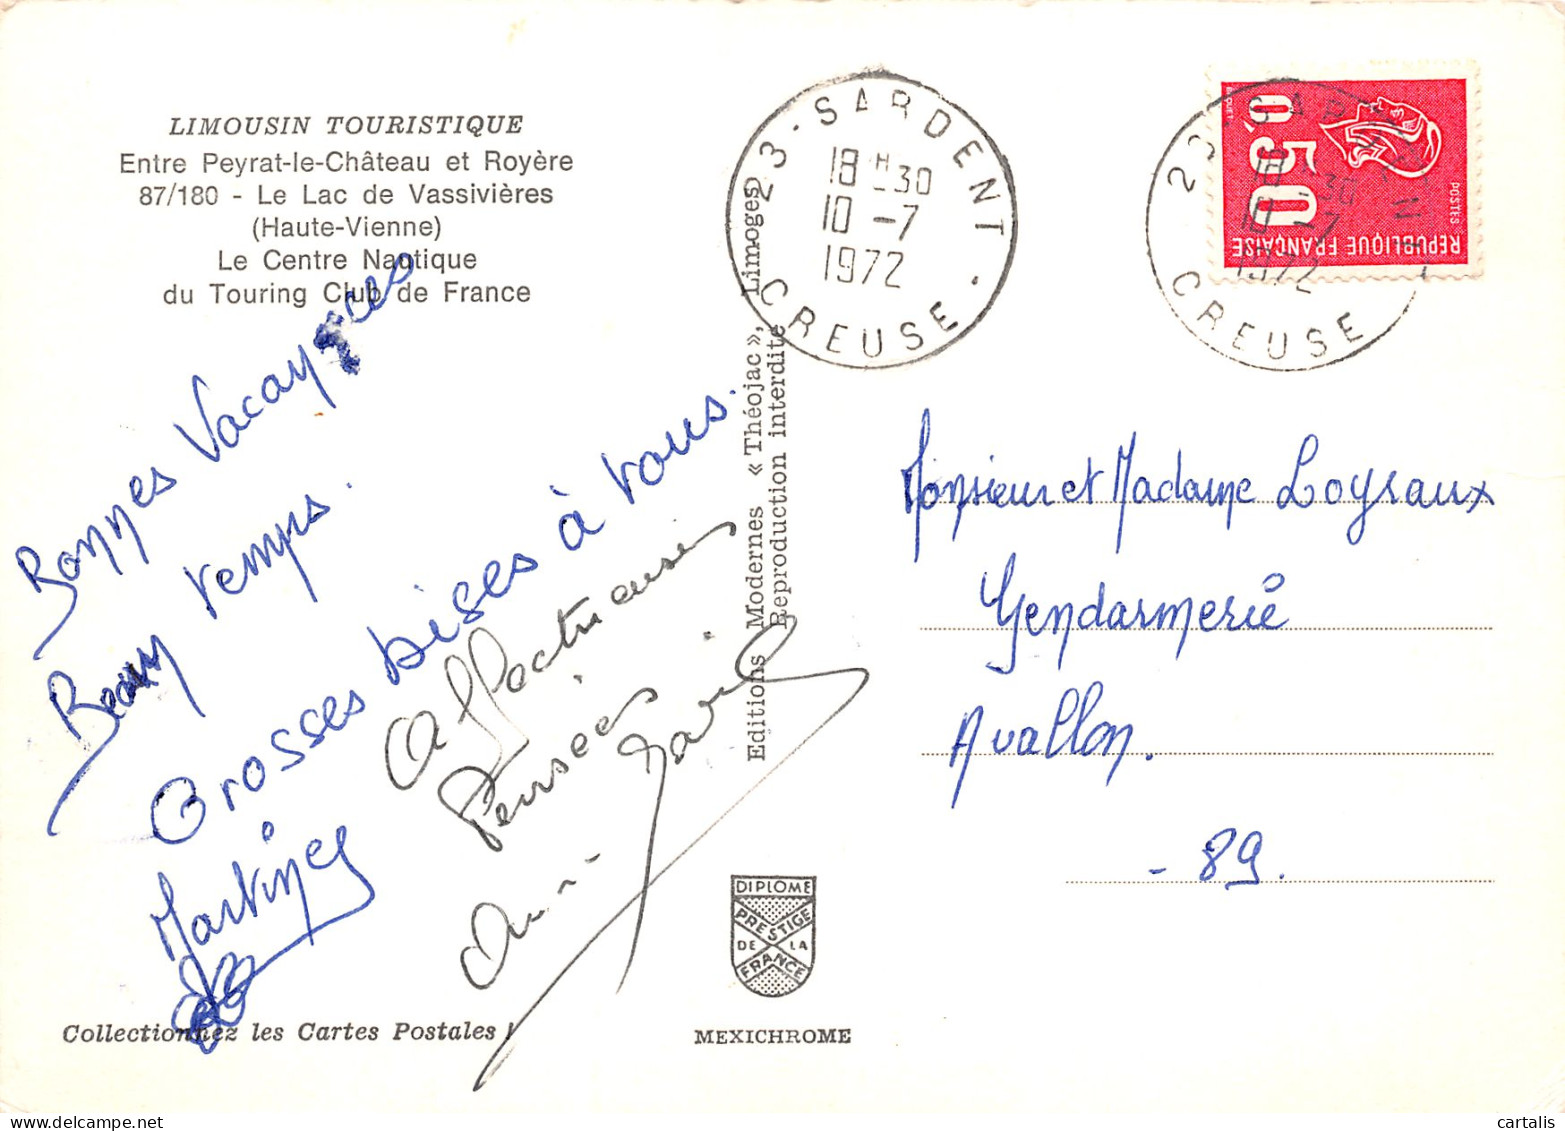 LIMOUSIN TOURISTIQUE
Entre Peyrat-le-Château et Royère
87/180 - Le Lac de Vassivières
(Haute-Vienne)
Le Centre Nautique
du Touring Club de France
23 - SARDENT
18 H -30
10 -7
1972
CREUSE
23 - SARDENT
18 H -30
10 -7
1972
CREUSE
0,50
POSTES
REPUBLIQUE FRANÇAISE
Bonnes Vacances
Beau temps.
Grosses bises à vous.
Martine
Affectueuses
Pensées
Editions Modernes « Théojac », Limoges
Reproduction interdite
Monsieur et Madame Loysaux
Gendarmerie
Avallon.
- 89.
DIPLOME
PRESTIGE
DE LA
FRANCE
Collectionnez les Cartes Postales !
MEXICHROME
cartalis